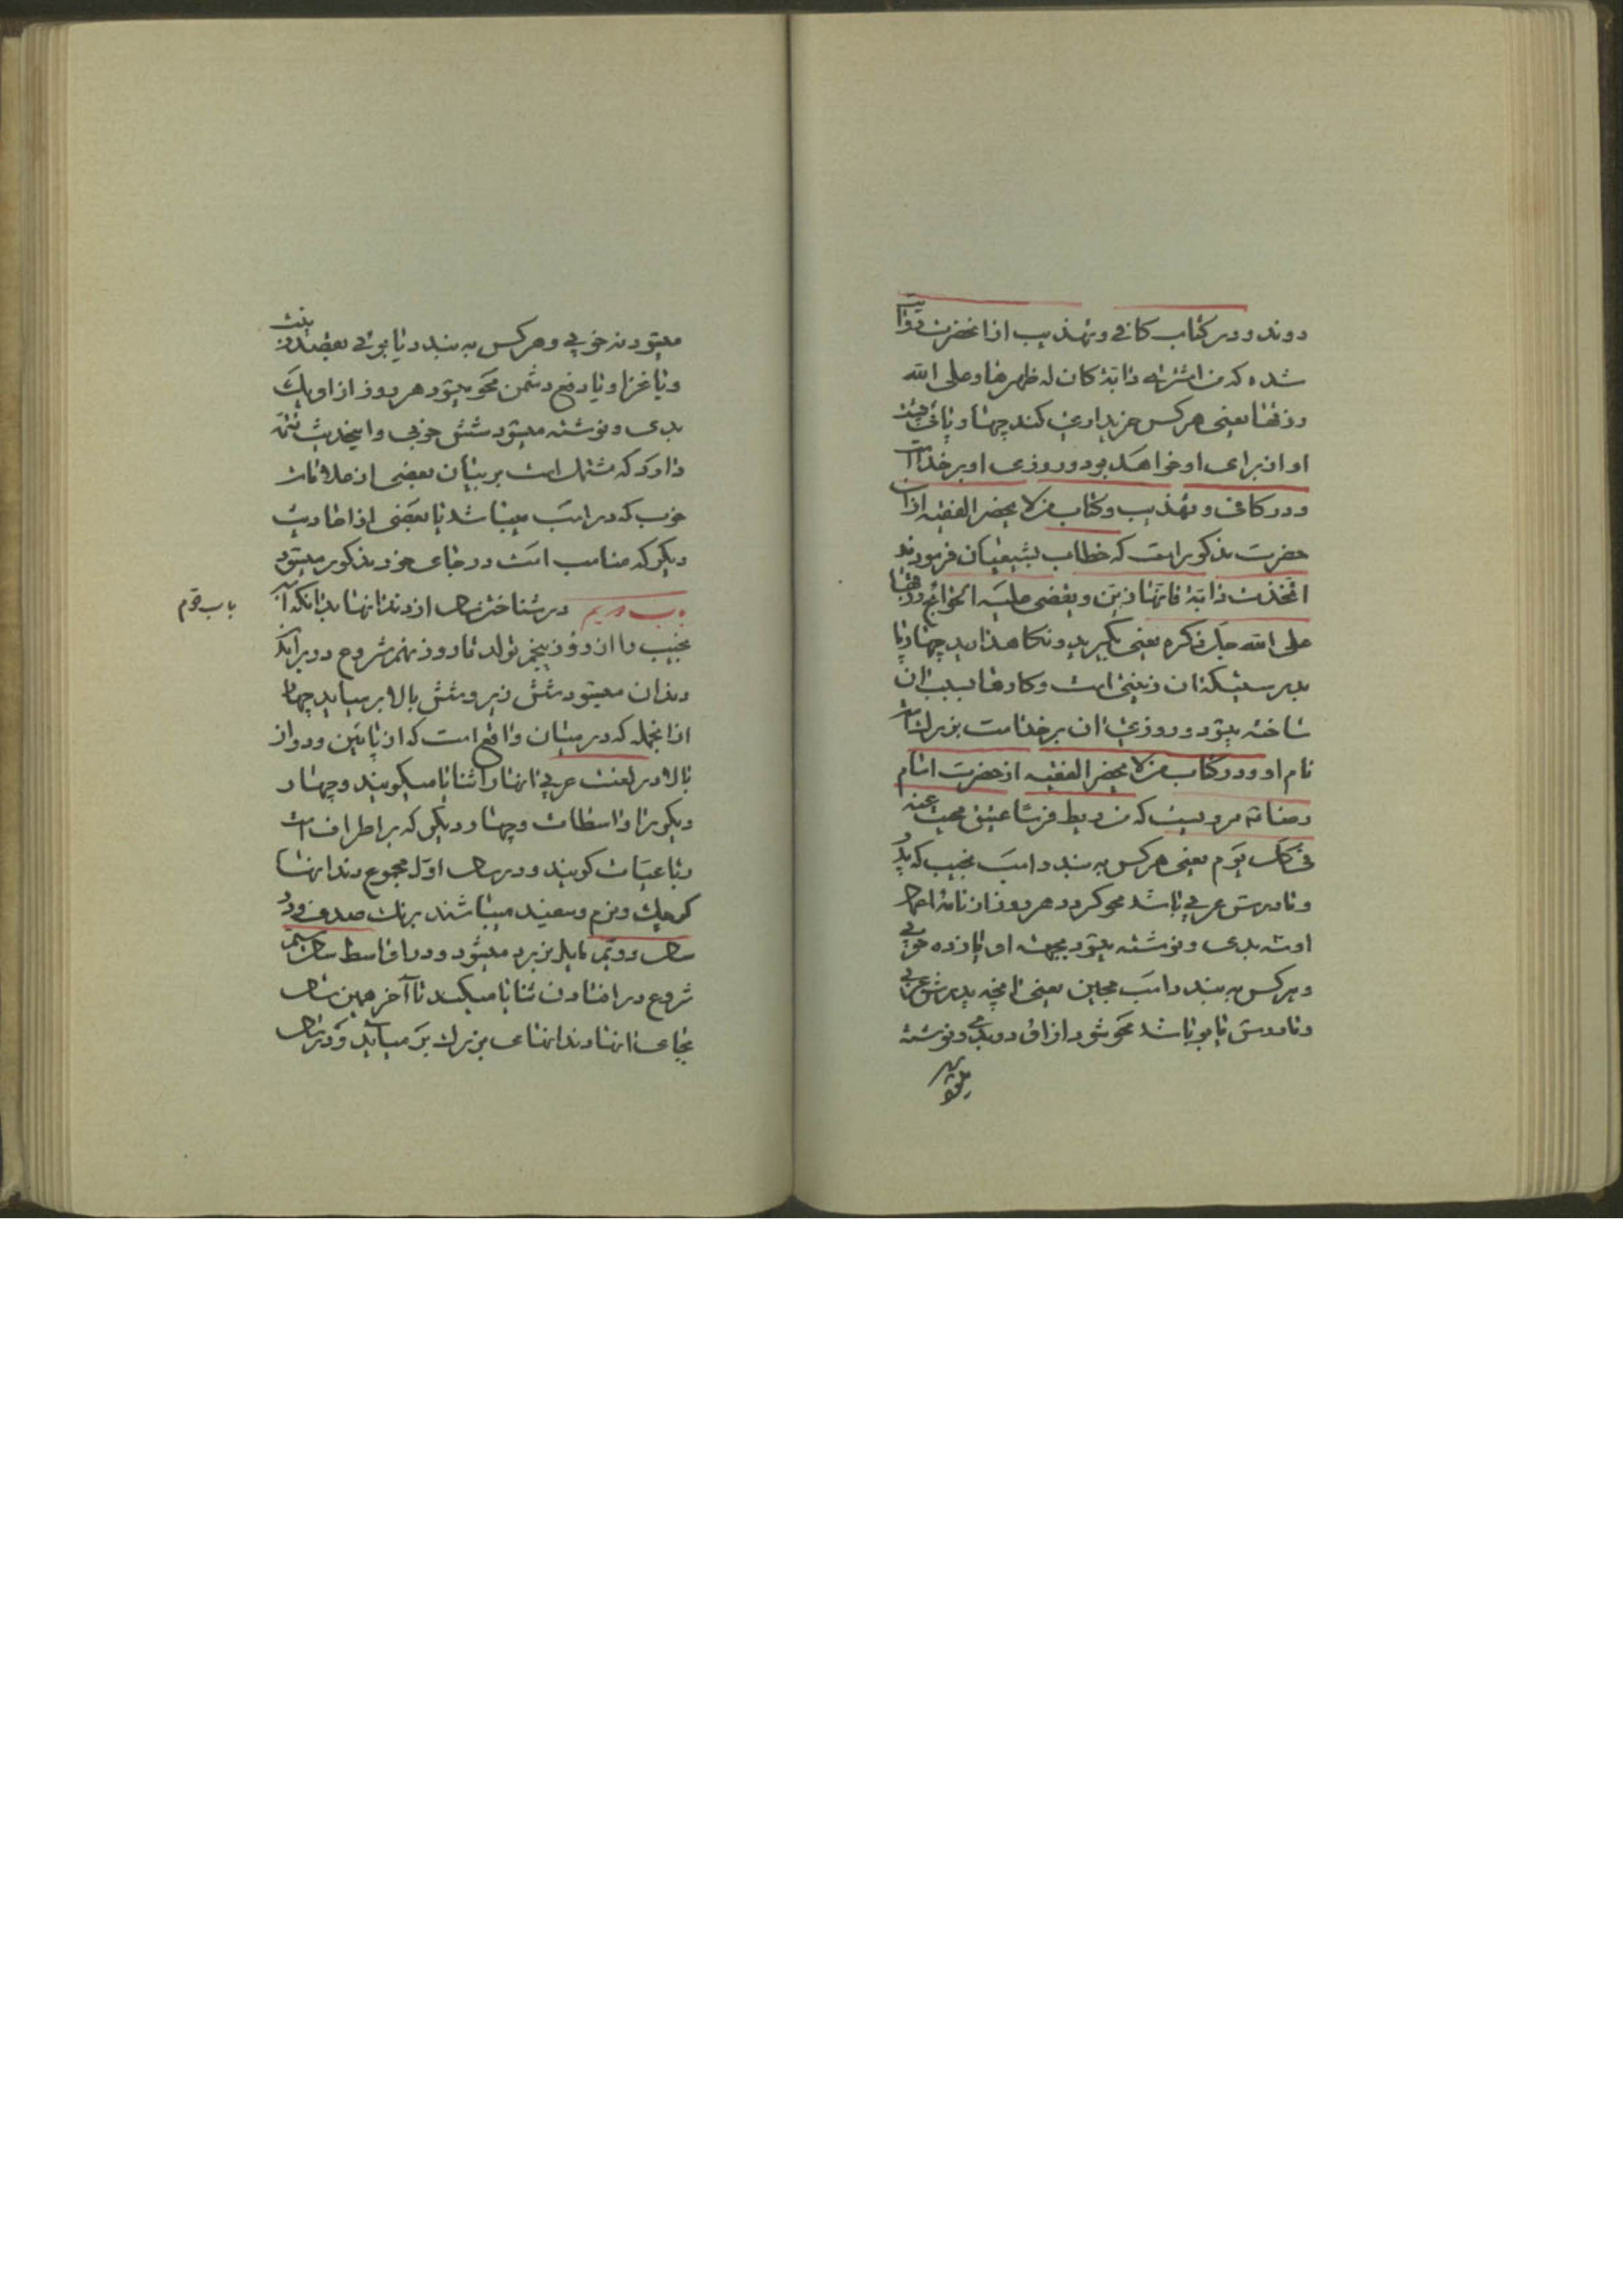 روند و در کتاب کافی و تهذیب از انحضرت روایت
شده که من اشتری دابة کان له ظهرها و علی الله
رزقها یعنی هرکس خریداری کند چهار پائی پشت
او از برای او خواهد بود و روزی او بر خداست
و در کافی و تهذیب و کتاب من لا یحضر الفقیه از ان
حضرت مذکور است که خطاب بشیعیان فرمودند
اتخذت دابة فانها زین و یقضی علیه الحوائج و رزقها
علی الله جل ذکره یعنی بگیرید و نگاهدارید چهار پا
بدرستیکه ان زینتی است و کارها بسبب ان
ساخته میشود و روزی ان بر خداست بزرک است
نام او و در کتاب من لا یحضر الفقیه از حضرت امام
رضا مرویست که من ربط فرسا عتیق محیت عنه
فی کل یوم یعنی هرکس به بندد اسب نجیب که پدر
و مادرش عربی باشد محو کردد هر روز از نامه اعمال
او سه بدی و نوشته میشود بجهت او یازده خوبی
و هرکس به بندد اسب هجین یعنی انچه پدرش عربی
و مادرش یابو باشد محو شود از او دو بدی و نوشته
میشود
میشود نه خوبی و هرکس به بندد یابوئی بقصد زینت
و یا غزا و یا دفع دشمن محو میشود هر روز از او یک
بدی و نوشته میشود شش خوبی و اینحدیث تتمه
دارد که مشتمل است بر بیان بعضی از علامات
خوب که در اسب میباشد با بعضی از احادیث
دیکر که مناسب است در جای خود مذکور میشود
باب دویم در شناختن سال از دندانها بدانکه اسب
نجیب را از روز پنجم تولد تا روز نهم شروع در برآمدن
دندان میشود شش زیر و شش بالا بر میاید چهار
از انجمله که در میان واقع است که از پائین و دو از
بالا در لغت عربی انها را ثنایا میکویند و چهار
دیکر را واسطات و چهار دیکر که بر اطراف است
رباعیات کویند و در سال اول مجموع دندانها
کوچک و نرم و سفید میباشند برنک صدف و در
سال دویم مایل بزردی میشود و در اواسط سال سیم
شروع در افتادن ثنایا میکند تا آخر همین سال
بجای انها دندانهای بزرک بر میاید و در سال
باب دوم